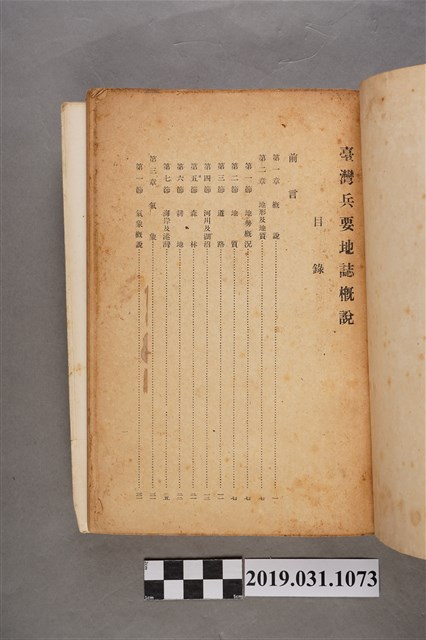 臺灣兵要地誌概說
目錄
前言
第一章 概說
第二章 地形及地質
第一節 地勢概況
第二節 地質
第三節 道路
第四節 河川及湖沼
第五節 森林
第六節 耕地
第七節 海岸及港灣
第三章 氣象
第一節 氣象概說
2019.031.1073